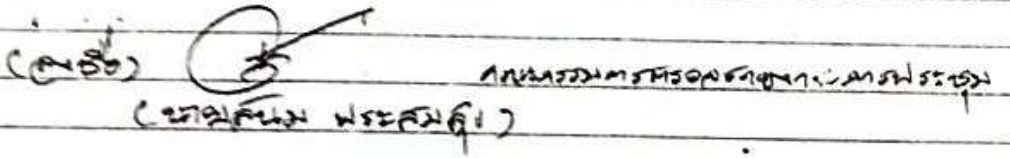 (ลงชื่อ) คณะกรรมการตรวจรายงานการประชุม
(นายสนม ประสม